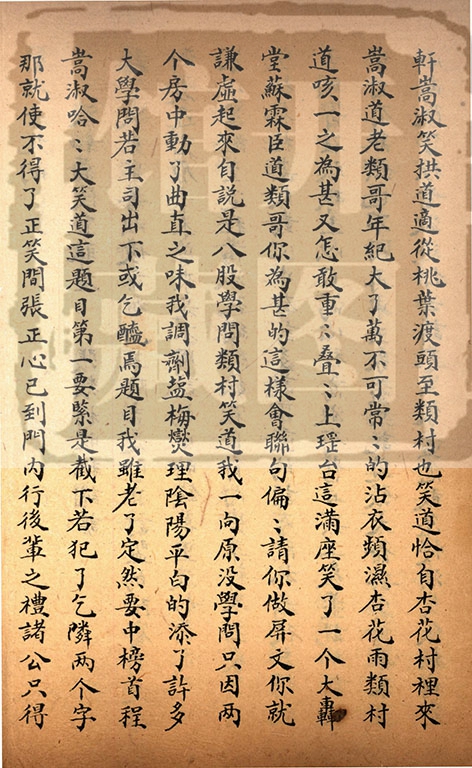 軒嵩淑笑拱道適從桃葉渡頭至類村也笑道恰自杏花村裡來
嵩淑道老類哥年紀大了萬不可常〻的沾衣頻濕杏花雨類村
道咳一之為甚又怎敢重〻叠〻上瑶台這滿座笑了一个大轟
堂蘇霖臣道類哥你為甚的這樣會聯句偏〻請你做屏文你就
謙虛起來自説是八股學問類村笑道我一向原没學問只因兩
个房中動了曲直之味我調劑塩梅燮理陰陽平白的添了許多
大學問若主司出下或乞醯焉題目我雖老了定然要中榜首程
嵩淑哈〻大笑道這題目第一要緊是截下若犯了乞隣两个字
那就使不得了正笑間張正心已到門内行後輩之禮諸公只得